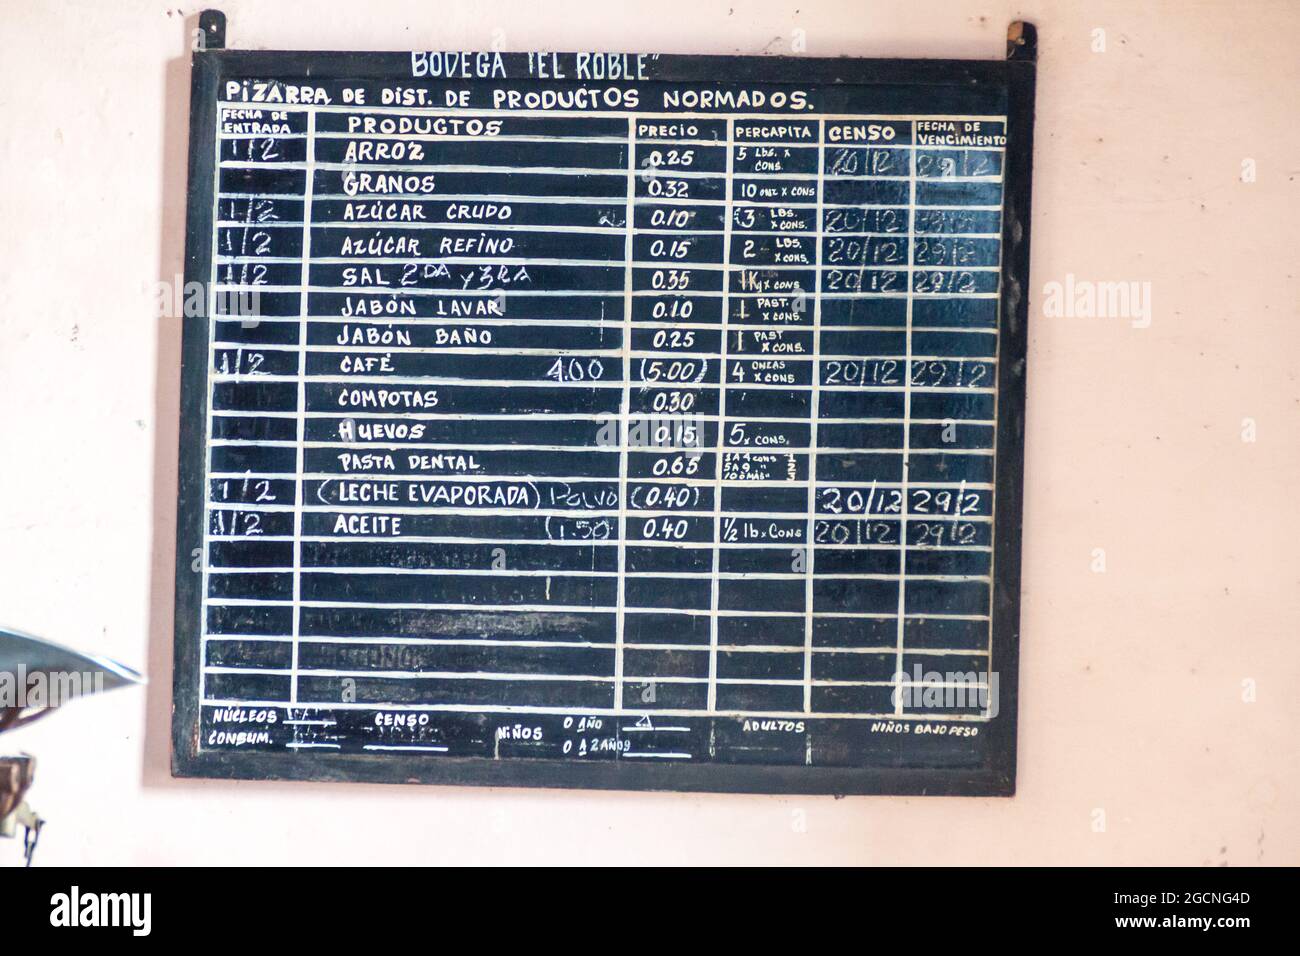 BODEGA "EL ROBLE"
PIZARRA DE DIST. DE PRODUCTOS NORMADOS.
FECHA DE ENTRADA PRODUCTOS PRECIO PERCAPITA CENSO FECHA DE VENCIMIENTO
1/2 ARROZ 0.25 5 Lbs. x CONS. 20/12 29/2
GRANOS 0.32 10 onz x CONS
1/2 AZÚCAR CRUDO 0.10 3 LBS. x CONS. 20/12 29/2
1/2 AZÚCAR REFINO 0.15 2 LBS. x CONS. 20/12 29/2
1/2 SAL 2DA y 3RA 0.35 1Kg x CONS 20/12 29/2
JABÓN LAVAR 0.10 1 PAST. x CONS.
JABÓN BAÑO 0.25 1 PAST x CONS.
1/2 CAFÉ 4.00 (5.00) 4 ONZAS x CONS 20/12 29/2
COMPOTAS 0.30
HUEVOS 0.15 5 x CONS.
PASTA DENTAL 0.65 1 A 4 CONS 1
5 A 9 " 2
10 ó MÁS " 3
1/2 (LECHE EVAPORADA) POLVO (0.40) 20/12 29/2
1/2 ACEITE (1.50) 0.40 1/2 lb x CONS 20/12 29/2
NÚCLEOS CENSO NIÑOS 0 AÑO ADULTOS NIÑOS BAJO PESO
CONSUM. 0 A 2 AÑOS
alamy
Image ID: 2GCNG4D
www.alamy.com